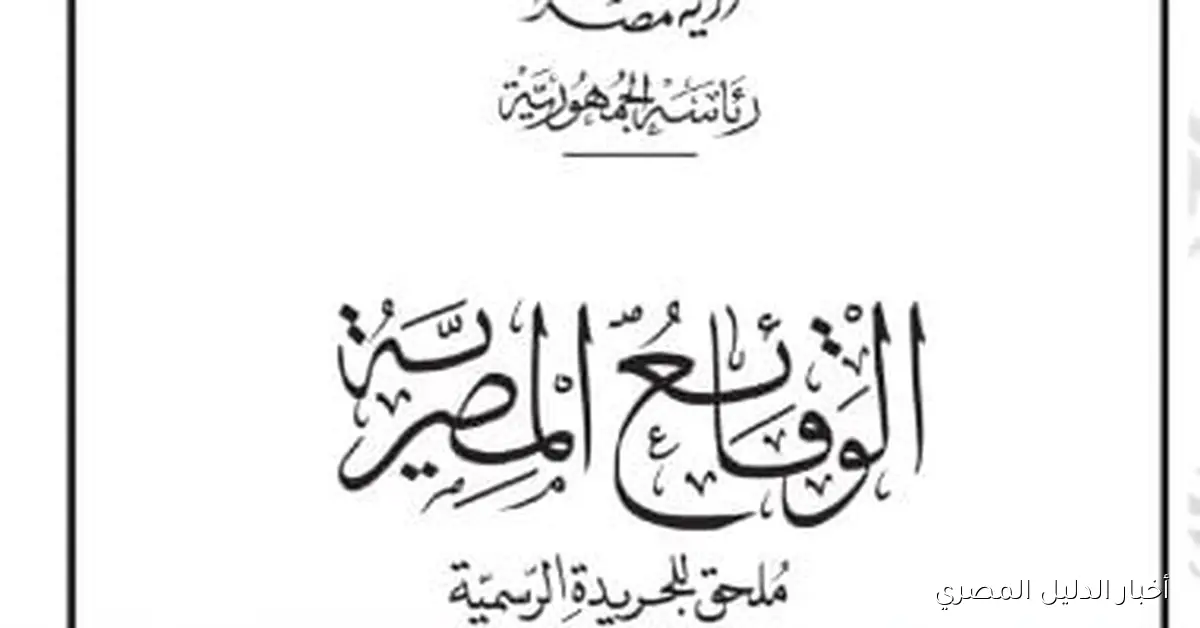 رئاسة الجمهورية
الوقائع المصرية
ملحق للجريدة الرسمية
أخبار الدليل المصري